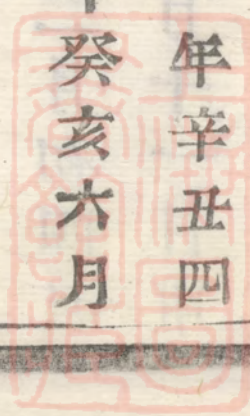 年辛丑四
癸亥六月